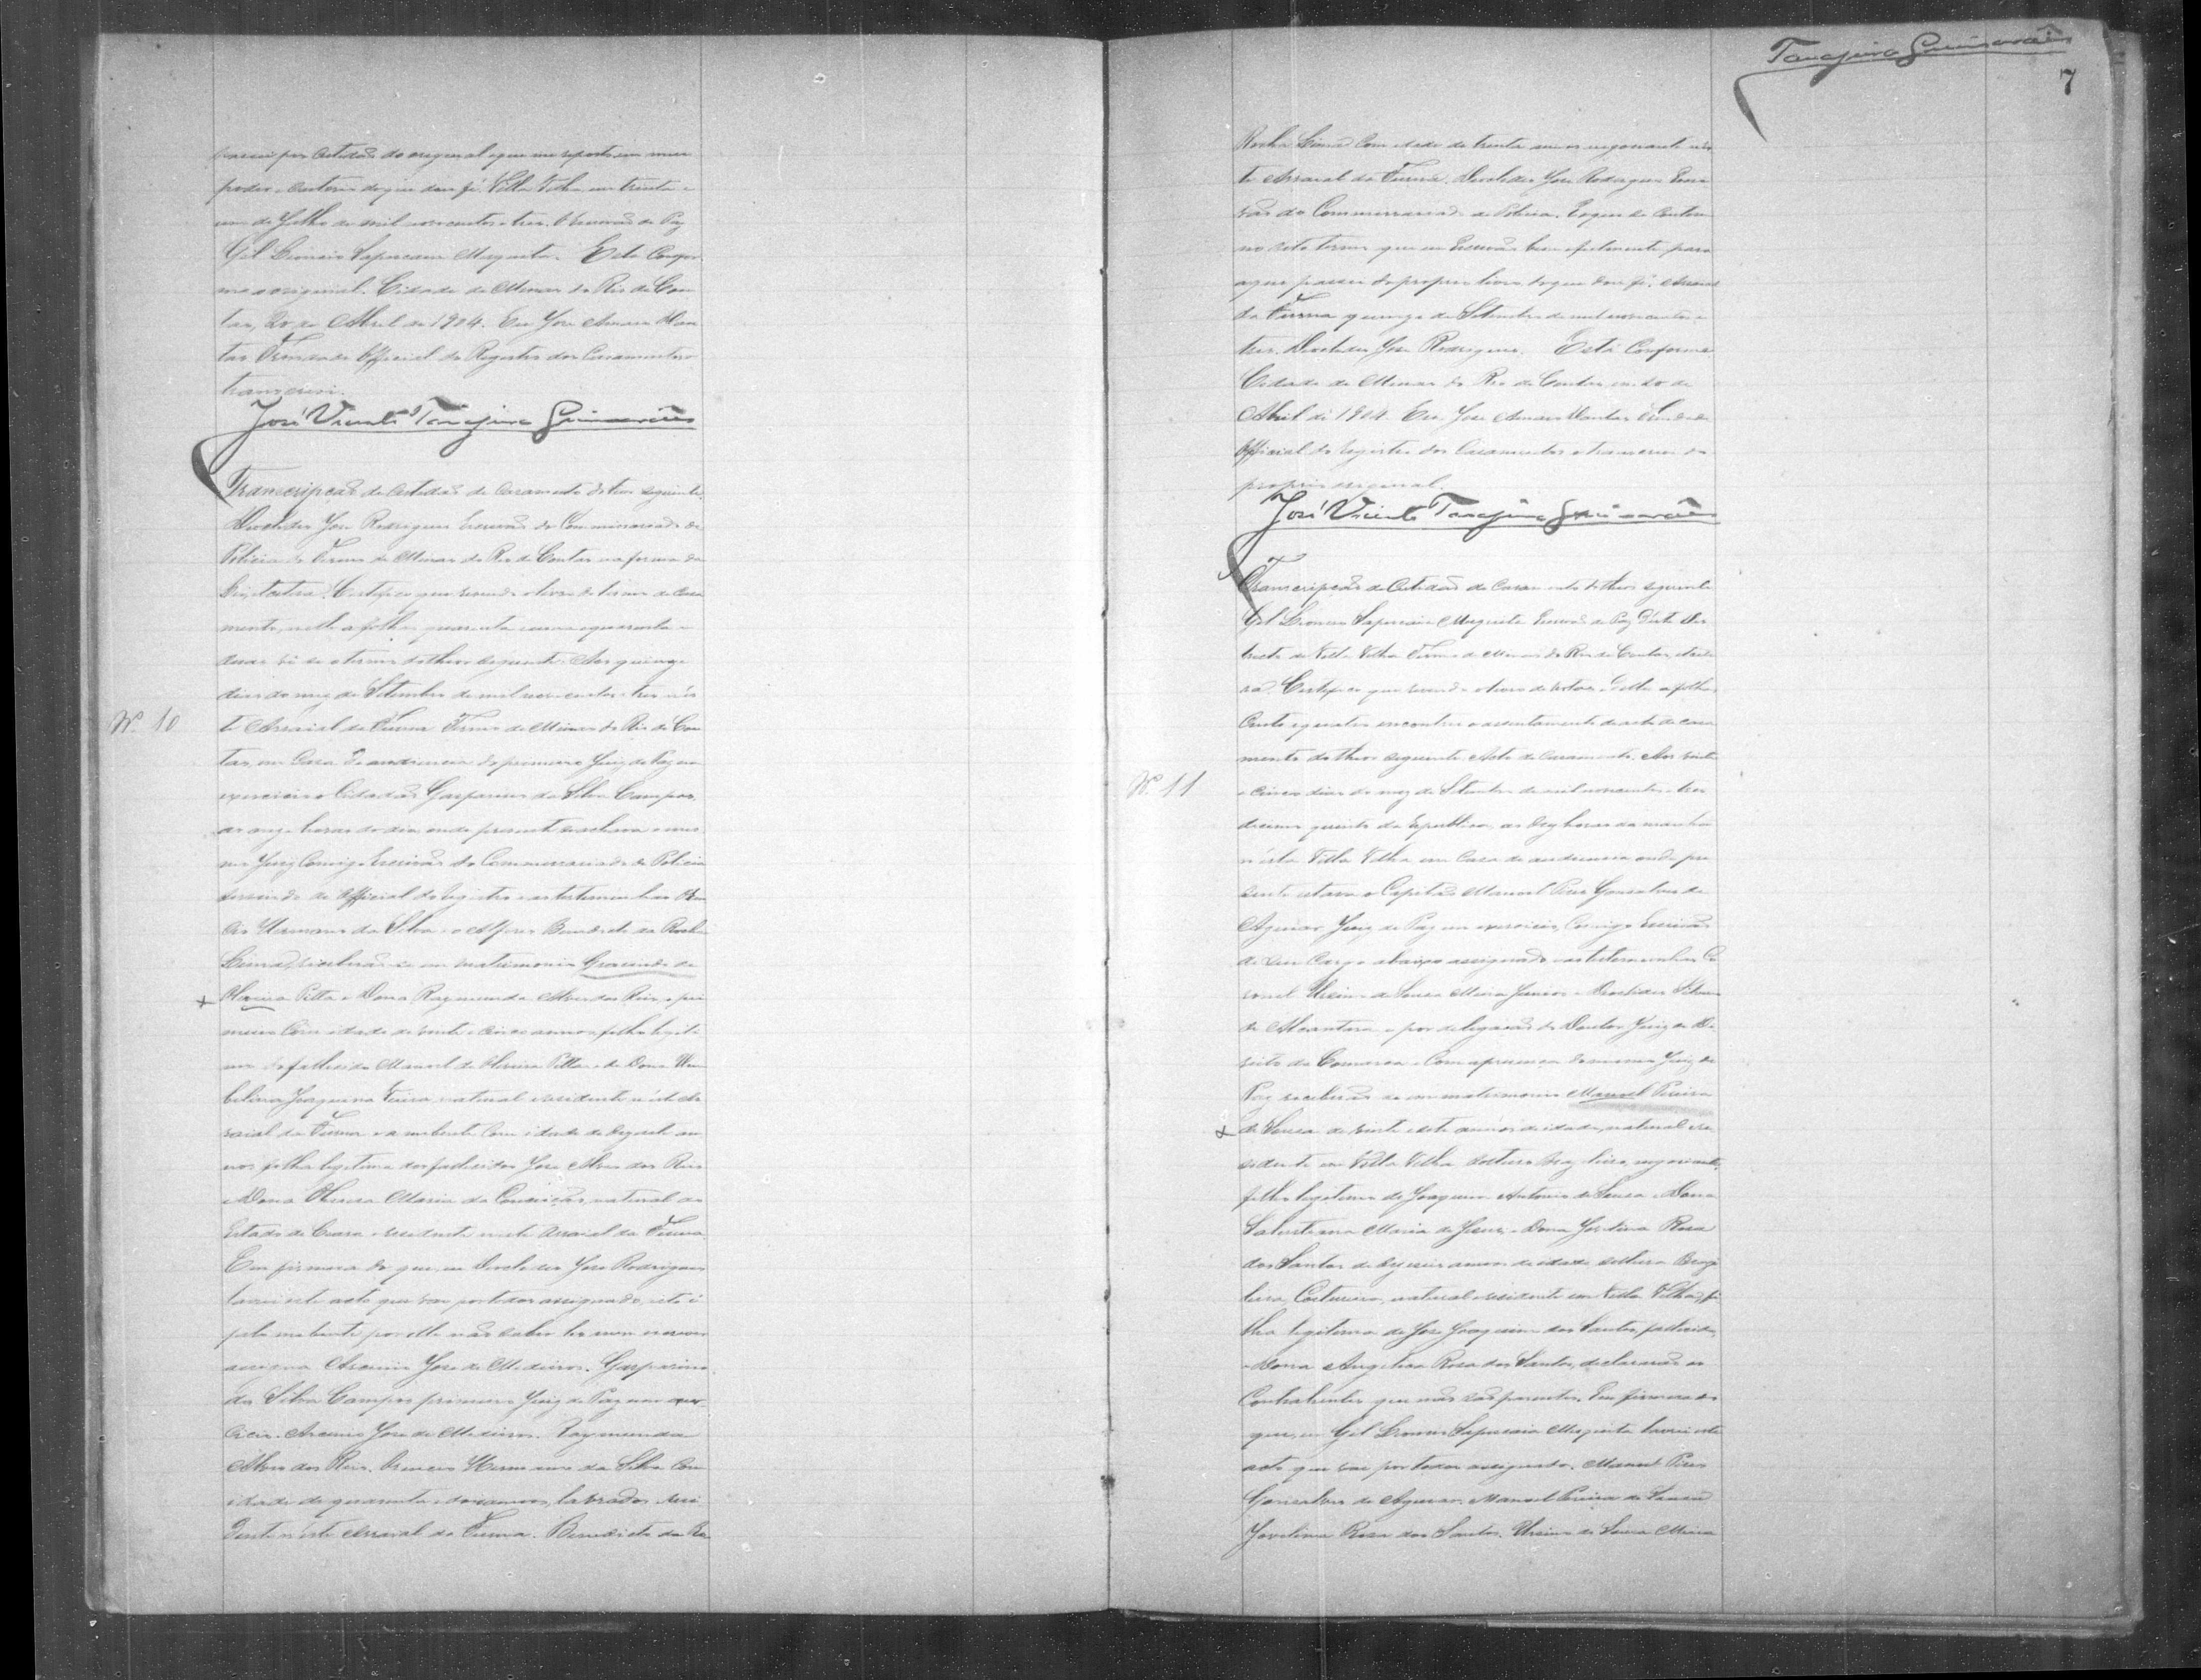 passei por Certidão do original a que me reporto em meu
poder e Cartorio do que dou fé. Villa Velha em trinta e
um de Julho de mil novecentos e tres. O Escrivão de Paz
Gil Sapucaia Mesquita. Está Confor
me o original. Cidade de Minas do Rio de Con
tas, 20 de Abril de 1904. Eu José Amaro Dan
tas Official do Registro dos Casamentos o
transcrevi.
José Vicente Tanajura Guimarães
Transcripção da Certidão de Casamento do theor seguinte.
José Rodrigues Escrivão do Commissariado de
Policia do Termo de Minas do Rio de Contas na forma da
Lei, etc. Certifico que vendo o livro de termo de Casa
mento, nelle a folhas quarenta e quarenta e
duas vê se o termo do theor seguinte. Aos quinze
dias do mez de Setembro de mil novecentos e tres nes
te Arraial da Furna Termo de Minas do Rio de Con
Nº 10
tas, em Casa de audiencia do primeiro Juiz de Paz em
exercicio o Cidadão Gasparino da Silva Campos,
as onze horas do dia onde presente se achava o mes
mo Juiz Comigo Escrivão do Commissariado de Policia
servindo de Official do Registro e as testemunhas
da Silva e o Alferes Benedicto da Rocha
Lima, receberão se em matrimonio de
Oliveira Pitta e Dona Raymunda Alves dos Reis, o pri
meiro Com idade de vinte e cinco annos, filho legiti
mo do fallecido Manoel de Oliveira Pitta e de Dona Um
belina Joaquina natural e residente n'este Ar
raial da Furna e a nubente Com idade de dezesete an
nos filha legitima dos fallecidos José Alves dos Reis
e Dona Maria da Conceição, natural do
Estado do Ceará e residente neste Arraial da Furna
Em firmeza do que, eu José Rodrigues
lavrei este acto que vae por todos assignado, isto é
pela nubente, por ella não saber ler nem escrever
assigna Arsenio José de Medeiros. Gasparino
da Silva Campos primeiro Juiz de Paz em exer
cicio. Arsenio José de Medeiros. Raymunda
Alves dos Reis. da Silva Com
idade de quarenta e dois annos, lavrador, resi
dente n'este Arraial da Furna. Benedicto da Ro
Tanajura Guimarães
7
Rocha Lima Com idade de trinta annos negociante nes
te Arraial da Furna. José Rodrigues Escri
vão do Commissariado de Policia. É o que se Contem
no dito termo que eu Escrivão bem e fielmente para
aqui passei do proprio livro do que dou fé. Arraial
da Furna quinze de Setembro de mil novecentos e
tres. José Rodrigues. Está Conforme
Cidade de Minas do Rio de Contas, em 20 de
Abril de 1904. Eu José Amaro Dantas
Official do registro dos Casamentos o transcrevi do
proprio original.
José Vicente Tanajura Guimarães
Transcripção da Certidão de Casamento do theor seguinte
Gil Sapucaia Mesquita Escrivão de Paz d'este Dis
tricto de Villa Velha Termo de Minas do Rio de Contas, etc.
Certifico que vendo o livro de notas n'elle a folhas
Cento e quatro encontrei o assentamento do acto de casa
mento do theor seguinte. Acto de Casamento. Aos vinte
Nº 11
e cinco dias do mez de Setembro de mil novecentos e tres
decimo quinto da Republica, as dez horas da manhã
n'esta Villa Velha em Casa de audiencia onde pre
sente estava o Capitão Manoel Pires Gonsalves de
Aguiar Juiz de Paz em exercicio, Comigo Escrivão
de seu Cargo abaixo assignado e as testemunhas Co
ronel de Sousa Meira Junior e
de Alcantara e por delegação do Doutor Juiz de Di
reito da Comarca e Com a presença do mesmo Juiz de
Paz receberão se em matrimonio Manoel Pereira
de Sousa de vinte e sete annos de idade, natural e re
sidente em Villa Velha solteiro brazileiro, negociante,
filho legitimo de Joaquim Antonio de Sousa e Dona
Salustiana Maria de Jesus e Dona Jovelina Rosa
dos Santos de dezeseis annos de idade solteira Brazi
leira, Costureira, natural e residente em Villa Velha, fi
lha legitima de José Joaquim dos Santos, fallecido,
e Dona Angelica Rosa dos Santos, declararão os
Contrahentes que não são parentes. Em firmeza do
que, eu Gil Sapucaia Mesquita lavrei este
acto que vae por todos assignado. Manoel Pires
Gonsalves de Aguiar. Manoel Pereira de Sousa
Jovelina Rosa dos Santos. de Sousa Meira